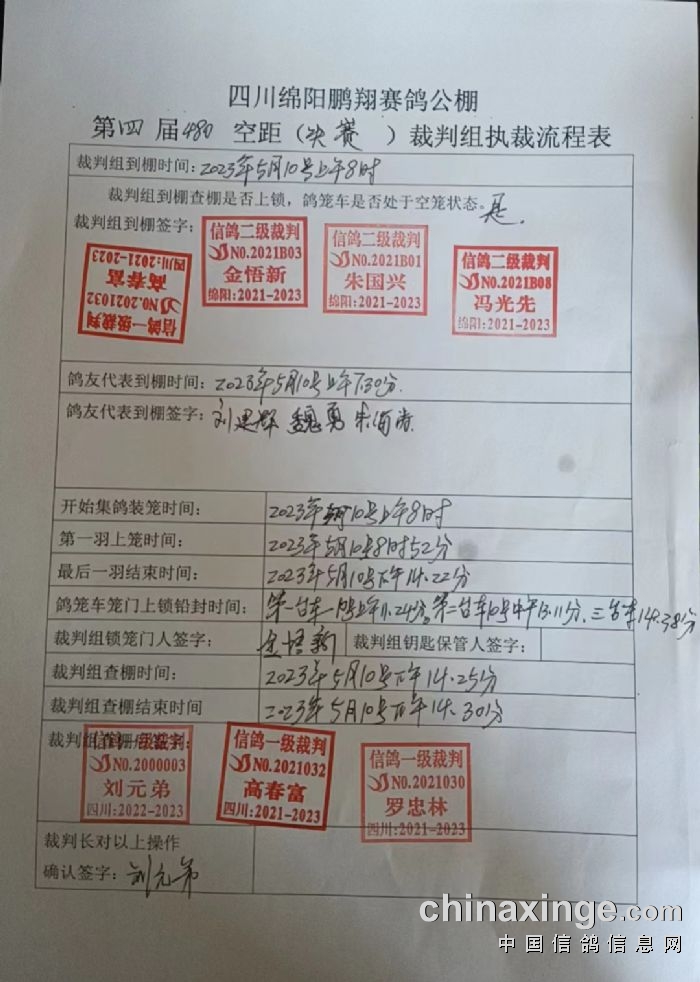 四川绵阳鹏翔赛鸽公棚
第四届480空距（决赛）裁判组执裁流程表
裁判组到棚时间：2023年5月10号上午8时
裁判组到棚查棚是否上锁，鸽笼车是否处于空笼状态。是.
裁判组到棚签字：
信鸽一级裁判
NO.2021032
高春富
四川：2021-2023
信鸽二级裁判
NO.2021B03
金悟新
绵阳：2021-2023
信鸽二级裁判
NO.2021B01
朱国兴
绵阳：2021-2023
信鸽二级裁判
NO.2021B08
冯光先
绵阳：2021-2023
鸽友代表到棚时间：2023年5月10号上午7.30分.
鸽友代表到棚签字：刘建辉 魏勇
开始集鸽装笼时间：2023年5月10号上午8时
第一羽上笼时间：2023年5月10号8时52分
最后一羽结束时间：2023年5月10号下午14.22分
鸽笼车笼门上锁铅封时间：第一台车10号上午11.24分，第二台车10号中午13.11分，三台车14.38分
裁判组锁笼门人签字：金悟新 裁判组钥匙保管人签字：
裁判组查棚时间：2023年5月10号下午14.25分
裁判组查棚结束时间 2023年5月10号下午14.30分
裁判组查棚后签字：
信鸽一级裁判
NO.2000003
刘元弟
四川：2022-2023
信鸽一级裁判
NO.2021032
高春富
四川：2021-2023
信鸽一级裁判
NO.2021030
罗忠林
四川：2021-2023
裁判长对以上操作
确认签字：刘元弟
chinaxinge.com
中国信鸽信息网